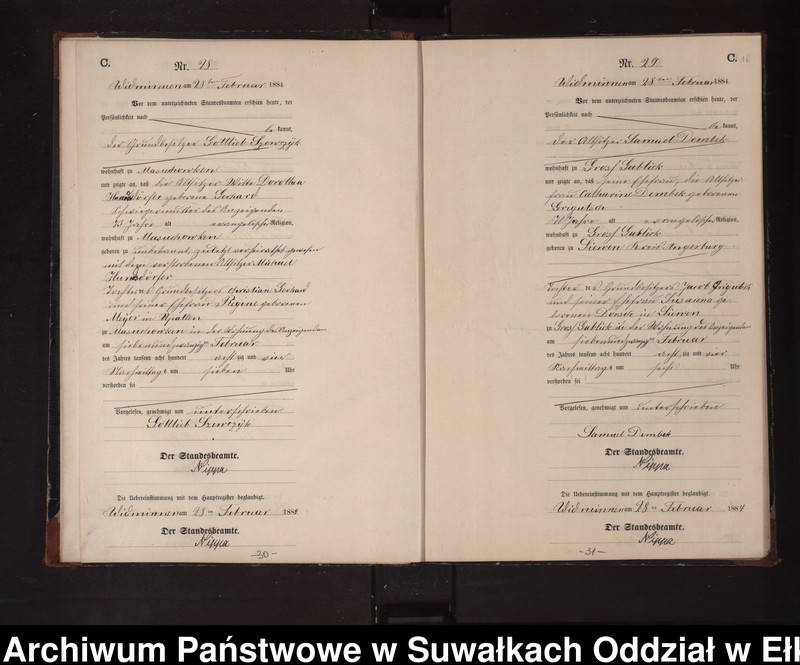 C.
Nr. 28
Widminnen am 28ten Februar 1884
Vor dem unterzeichneten Standesbeamten erschien heute, der
Persönlichkeit nach
bekannt,
der Grundbesitzer Gottlieb Szewczyk
wohnhaft zu Masuchowken
und zeigte an, daß der Altsitzer Witwe Dorothea
Hunsdörfer geborene Gerhard
Schwiegermutter des Anzeigenden
Jahre alt evangelischer Religion,
wohnhaft zu Masuchowken
geboren zu unbekannt, zuletzt verheirathet gewesen
mit dem verstorbenen Altsitzer Michael
Hunsdörfer
Tochter des Grundbesitzers Christian Gerhard
und seiner Ehefrau Regine geborenen
Meyer in Upalten
zu Masuchowken in der Wohnung des Anzeigenden
am siebenundzwanzigten Februar
des Jahres tausend acht hundert achtzig und vier
Nachmittags um sieben Uhr
verstorben sei
Vorgelesen, genehmigt und unterschrieben
Gottlieb Szewczyk
Der Standesbeamte.
Nippa
Die Uebereinstimmung mit dem Hauptregister beglaubigt.
Widminnen am 28ten Februar 1884
Der Standesbeamte.
Nippa
-30-
C. 16
Nr. 29
Widminnen am 28ten Februar 1884
Vor dem unterzeichneten Standesbeamten erschien heute, der
Persönlichkeit nach
bekannt,
der Altsitzer Samuel Dembek
wohnhaft zu Groß Gablick
und zeigte an, daß seine Ehefrau, die Altsitzer
frau Catharine Dembek geborenen
Grigutsch
Jahre alt evangelischer Religion,
wohnhaft zu Groß Gablick
geboren zu Siewen Kreis Angerburg
Tochter des Grundbesitzers Jacob
und seiner Ehefrau Susanna ge-
borenen in Siewen
zu Groß Gablick in der Wohnung des Anzeigenden
am siebenundzwanzigten Februar
des Jahres tausend acht hundert achtzig und vier
Nachmittags um sechs Uhr
verstorben sei
Vorgelesen, genehmigt und unterschrieben
Samuel Dembek
Der Standesbeamte.
Nippa
Die Uebereinstimmung mit dem Hauptregister beglaubigt.
Widminnen am 28ten Februar 1884
Der Standesbeamte.
Nippa
-31-
Archiwum Państwowe w Suwałkach Oddział w Eł